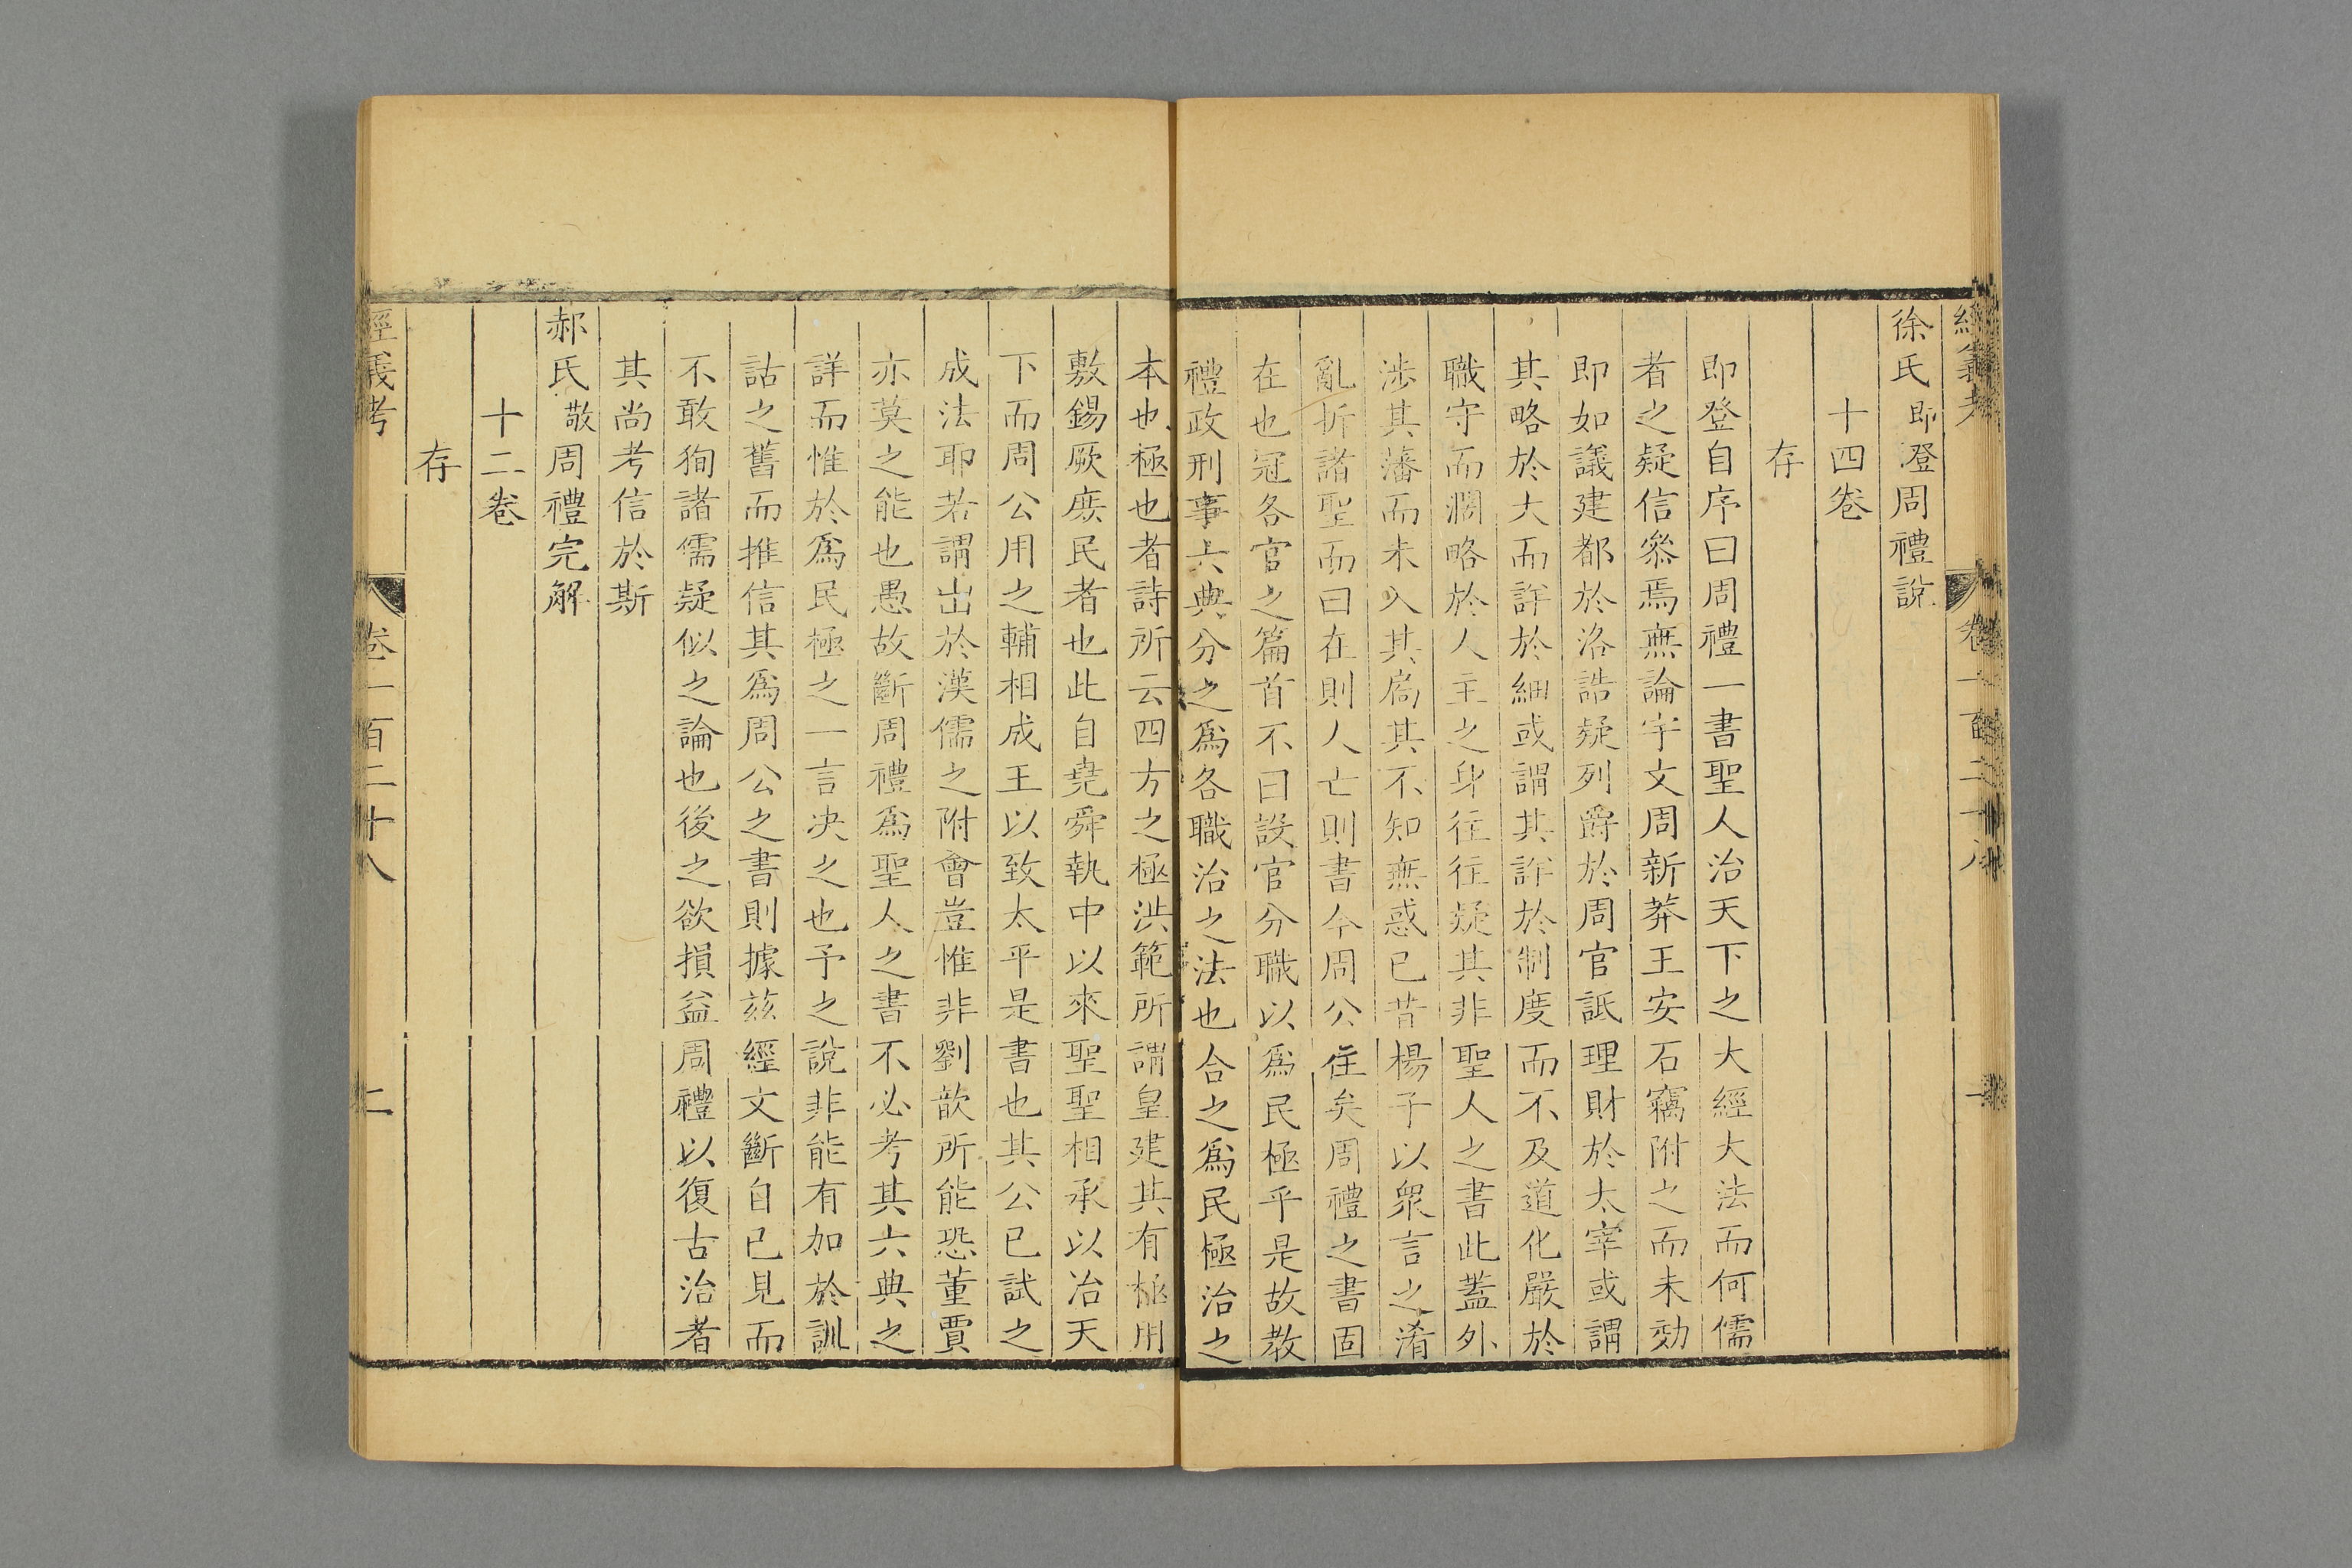 徐氏即登周禮說
十四卷
存
即登自序曰周禮一書聖人治天下之大經大法而何儒
者之疑信參焉無論宇文周新莽王安石竊附之而未効
即如議建都於洛誥疑列爵於周官詆理財於太宰或謂
其略於大而詳於細或謂其詳於制度而不及道化嚴於
職守而濶略於人主之身往往疑其非聖人之書此蓋外
涉其藩而未入其扃其不知無惑已昔楊子以衆言之淆
亂折諸聖而曰在則人亡則書今周公往矣周禮之書固
在也冠各官之篇首不曰設官分職以爲民極乎是故教
禮政刑事六典分之爲各職治之法也合之爲民極治之
本也極也者詩所云四方之極洪範所謂皇建其有極用
敷錫厥庶民者也此自堯舜執中以來聖聖相承以治天
下而周公用之輔相成王以致太平是書也其公已試之
成法耶若謂出於漢儒之附會豈惟非劉歆所能恐董賈
亦莫之能也愚故斷周禮爲聖人之書不必考其六典之
詳而惟於爲民極之一言决之也予之說非能有加於訓
詁之舊而推信其爲周公之書則據茲經文斷自已見而
不敢狥諸儒疑似之論也後之欲損益周禮以復古治者
其尚考信於斯
郝氏敬周禮完解
十二卷
存
經義考 卷一百二十八 二